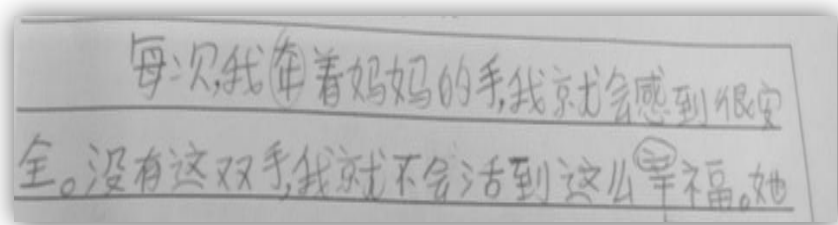 每次,我牵着妈妈的手,我就会感到很安
全。没有这双手,我就不会活到这么幸福。她